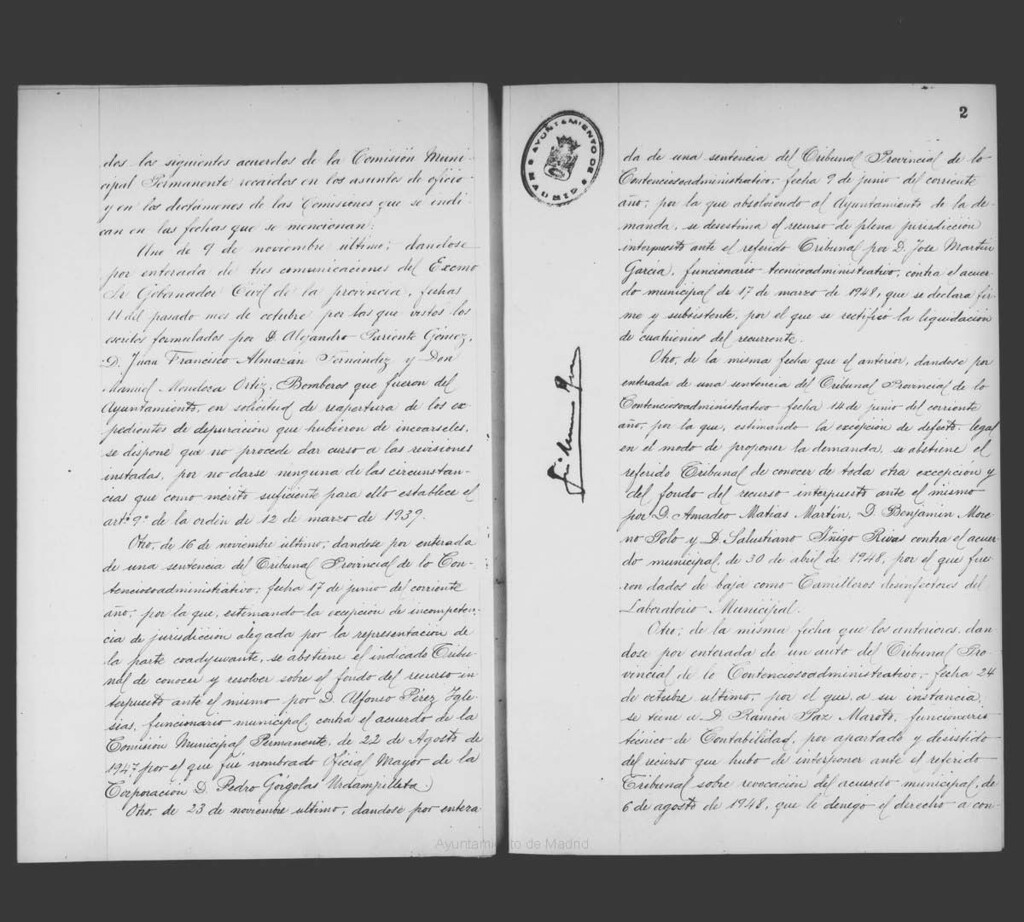 dos los siguientes acuerdos de la Comisión Muni-
cipal Permanente recaídos en los asuntos de oficio
y en los dictámenes de las Comisiones que se indi-
can en las fechas que se mencionan:
Uno de 9 de noviembre último; dándose
por enterada de tres comunicaciones del Excmo
Sr Gobernador Civil de la provincia, fechas
11 del pasado mes de octubre por las que vistos los
escritos formulados por D. Alejandro Pariente Gómez,
D. Juan Francisco Almazán Fernández y Don
Manuel Mendoza Ortiz, Bomberos que fueron del
Ayuntamiento, en solicitud de reapertura de los ex
pedientes de depuración que hubieron de incoarseles,
se dispone que no procede dar curso a las revisiones
instadas, por no darse ninguna de las circunstan-
cias que como mérito suficiente para ello establece el
artº 9º de la orden de 12 de marzo de 1939.
Otro, de 16 de noviembre último; dándose por enterada
de una sentencia del Tribunal Provincial de lo Con-
tenciosoadministrativo; fecha 17 de junio del corriente
año; por la que, estimando la excepción de incompeten-
cia de jurisdicción alegada por la representación de
la parte coadyuvante, se abstiene el indicado Tribu-
nal de conocer y resolver sobre el fondo del recurso in-
terpuesto ante el mismo por D. Alfonso Pérez Igle-
sias, funcionario municipal, contra el acuerdo de la
Comisión Municipal Permanente, de 22 de Agosto de
1947 por el que fué nombrado Oficial Mayor de la
Corporación D. Pedro Górgolas Urdampilleta.
Otro, de 23 de noviembre último; dándose por entera
AYUNTAMIENTO DE MADRID
2
da de una sentencia del Tribunal Provincial de lo
Contenciosoadministrativo, fecha 9 de junio del corriente
año; por la que absolviendo al Ayuntamiento de la de-
manda, se desestima el recurso de plena jurisdicción
interpuesto ante el referido Tribunal por D. Jose Martín
García, funcionario técnicoadministrativo, contra el acuer-
do municipal de 17 de marzo de 1948, que se declara fir-
me y subsistente, por el que se rectificó la liquidación
de cuatrienios del recurrente.
Otro, de la misma fecha que el anterior, dándose por
enterada de una sentencia del Tribunal Provincial de lo
Contenciosoadministrativo fecha 14 de junio del corriente
año, por la que, estimando la excepción de defecto legal
en el modo de proponer la demanda, se abstiene el
referido Tribunal de conocer de toda otra excepción y
del fondo del recurso interpuesto ante el mismo
por D. Amadeo Matías Martín, D. Benjamín More
no Polo y D. Salustiano Iñigo Rivas contra el acuer
do municipal, de 30 de abril de 1948, por el que fue
ron dados de baja como Camilleros desinfectores del
Laboratorio Municipal.
Otro; de la misma fecha que los anteriores, dán
dose por enterada de un auto del Tribunal Pro-
vincial de lo Contenciosoadministrativo; fecha 24
de octubre último, por el que, a su instancia,
se tiene a D. Ramón Paz Maroto, funcionario
técnico de Contabilidad, por apartado y desistido
del recurso que hubo de interponer ante el referido
Tribunal sobre revocación del acuerdo municipal, de
6 de agosto de 1948, que le denegó el derecho a con
Ayuntamiento de Madrid